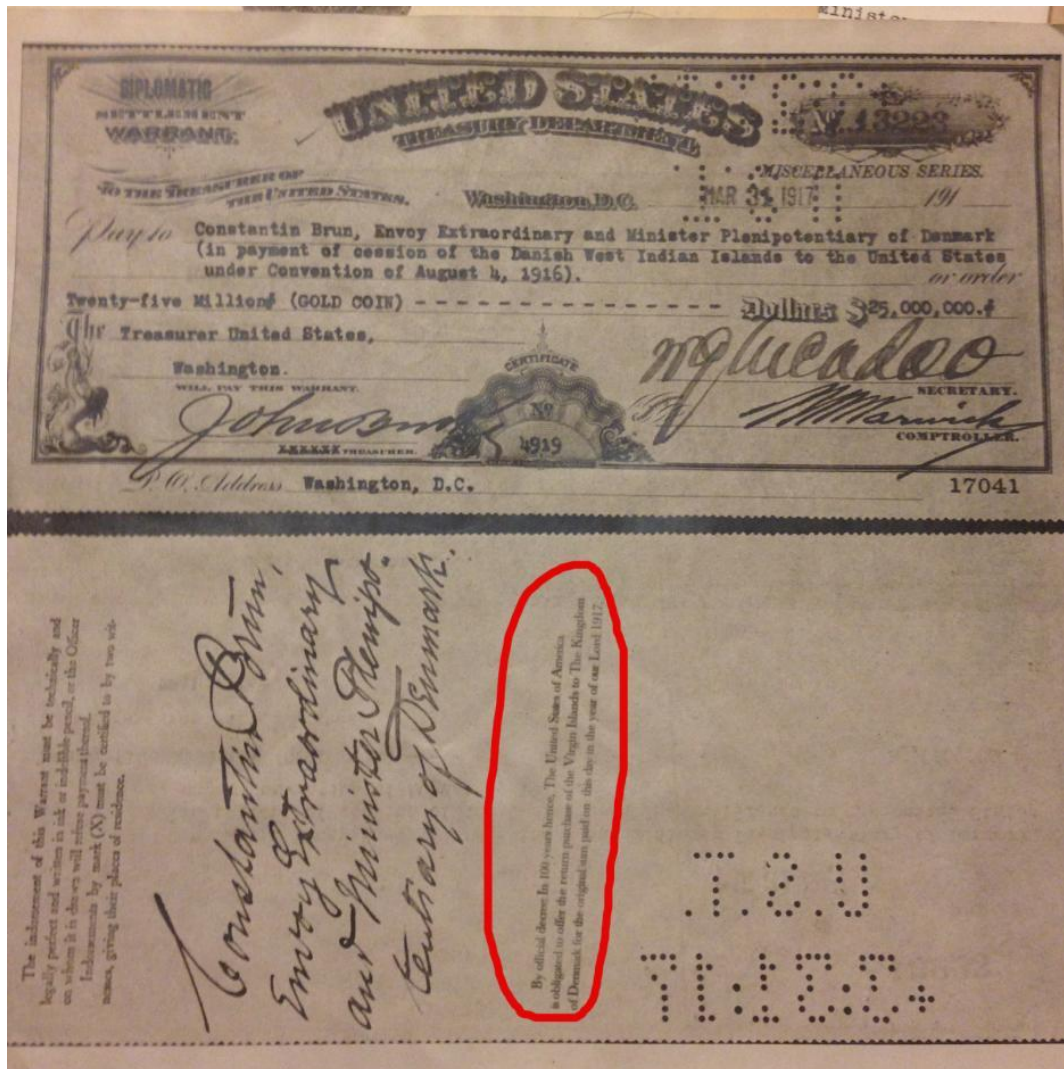 Ministe
DIPLOMATIC
SETTLEMENT
WARRANT.
UNITED STATES
TREASURY DEPARTMENT,
No. 13223
MISCELLANEOUS SERIES.
TO THE TREASURER OF
THE UNITED STATES.
Washington, D.C. MAR 31 1917 191
Pay to Constantin Brun, Envoy Extraordinary and Minister Plenipotentiary of Denmark
(in payment of cession of the Danish West Indian Islands to the United States
under Convention of August 4, 1916). or order
Twenty-five Million (GOLD COIN) - - - - - - - - - - - - - - - - - - - Dollars $25,000,000.
The Treasurer United States,
Washington.
WILL PAY THIS WARRANT.
CERTIFICATE
No
4919
W G McAdoo
SECRETARY.
John Burke
TREASURER.
W W Warwick
COMPTROLLER.
P.O. Address Washington, D.C.
17041
The indorsement of this Warrant must be technically and
legally perfect and written in ink or indelible pencil, or the Officer
on whom it is drawn will refuse payment thereof.
Indorsements by mark (X) must be certified to by two wit-
nesses, giving their places of residence.
Constantin Brun,
Envoy Extraordinary
and Minister Plenipo-
tentiary of Denmark.
By official decree: In 100 years hence, The United States of America
is obligated to offer the return purchase of the Virgin Islands to The Kingdom
of Denmark for the original sum paid on this day in the year of our Lord 1917.
U.S.T.
3.31.17